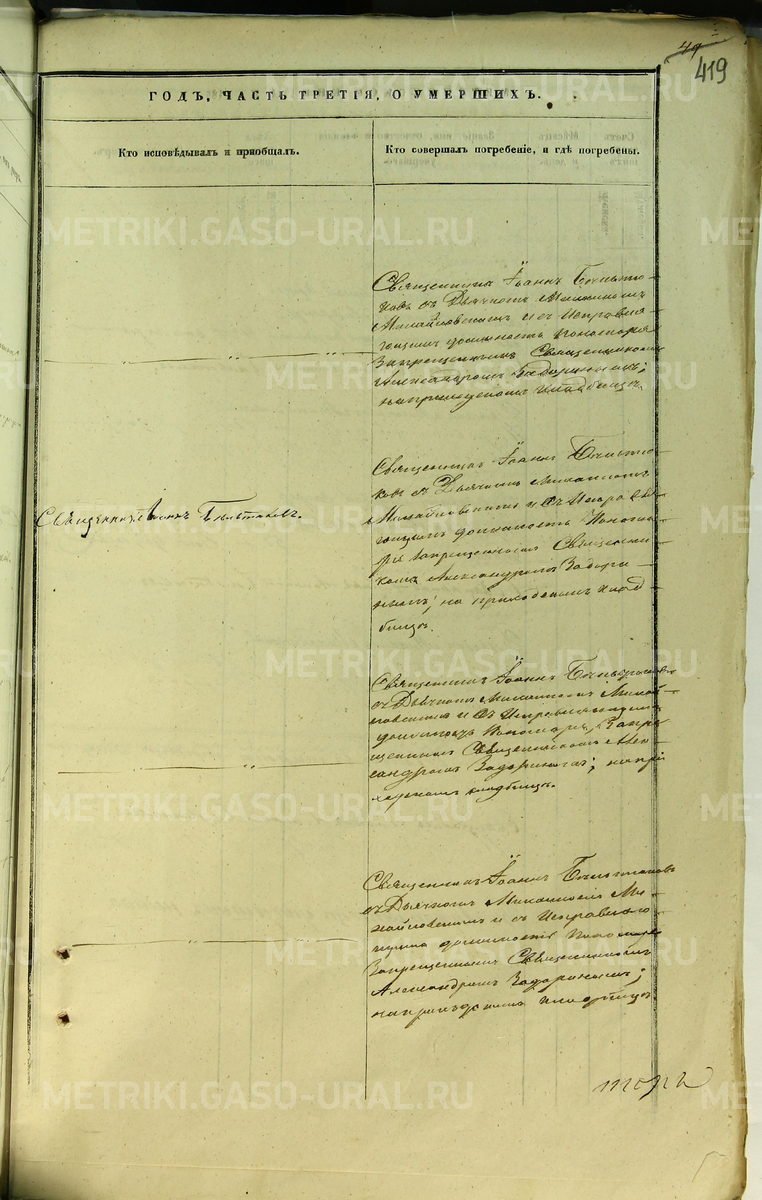 49
419
ГОДЪ, ЧАСТЬ ТРЕТІЯ, О УМЕРШИХЪ.
Кто исповѣдывалъ и пріобщалъ.
Кто совершалъ погребеніе, и гдѣ погребены.
METRIKI.GASO-URAL.RU
Священникъ Іоаннъ
съ Дьячкомъ
Михайловскимъ и съ Исправля-
ющимъ должность Пономаря
Запрещеннымъ Священникомъ
Александромъ Задоринымъ;
на приходскомъ кладбищѣ.
Священникъ Іоаннъ
Священникъ Іоаннъ
съ Дьячкомъ
Михайловскимъ и съ Исправля-
ющимъ должность Понома-
ря Запрещеннымъ Священни-
комъ Александромъ Задори-
нымъ; на приходскомъ клад-
бищѣ.
Священникъ Іоаннъ
съ Дьячкомъ Михай-
ловскимъ и съ Исправляющимъ
должность Пономаря Запре-
щеннымъ Священникомъ Алек-
сандромъ Задоринымъ; на при-
ходскомъ кладбищѣ.
Священникъ Іоаннъ
съ Дьячкомъ Ми-
хайловскимъ и съ Исправляю-
щимъ должность Пономаря
Запрещеннымъ Священникомъ
Александромъ Задоринымъ;
на приходскомъ кладбищѣ